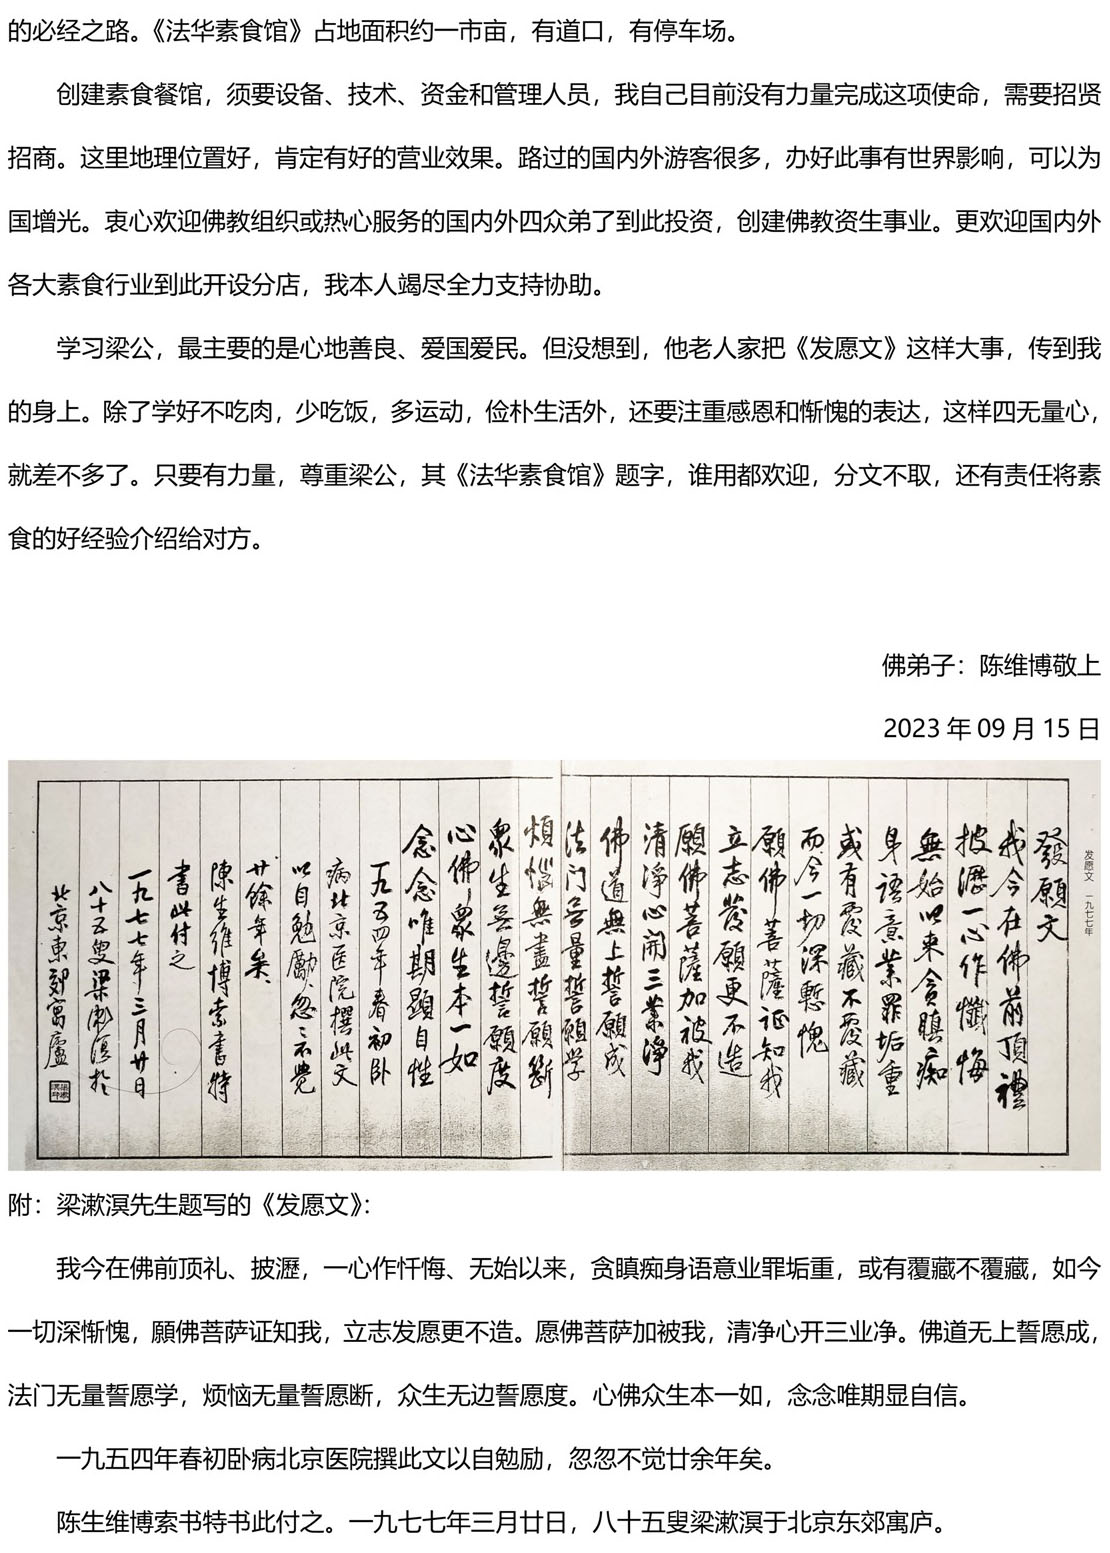 的必经之路。《法华素食馆》占地面积约一市亩，有道口，有停车场。
创建素食餐馆，须要设备、技术、资金和管理人员，我自己目前没有力量完成这项使命，需要招贤
招商。这里地理位置好，肯定有好的营业效果。路过的国内外游客很多，办好此事有世界影响，可以为
国增光。衷心欢迎佛教组织或热心服务的国内外四众弟了到此投资，创建佛教资生事业。更欢迎国内外
各大素食行业到此开设分店，我本人竭尽全力支持协助。
学习梁公，最主要的是心地善良、爱国爱民。但没想到，他老人家把《发愿文》这样大事，传到我
的身上。除了学好不吃肉，少吃饭，多运动，俭朴生活外，还要注重感恩和惭愧的表达，这样四无量心，
就差不多了。只要有力量，尊重梁公，其《法华素食馆》题字，谁用都欢迎，分文不取，还有责任将素
食的好经验介绍给对方。
佛弟子：陈维博敬上
2023 年 09 月 15 日
发愿文 一九七七年
發願文
我今在佛前頂禮
披瀝一心作懺悔
無始以来貪瞋痴
身語意業罪垢重
或有覆藏不覆藏
而今一切深慙愧
願佛菩薩证知我
立志發願更不造
願佛菩薩加被我
清淨心開三業淨
佛道無上誓願成
法门无量誓願学
煩惱無盡誓願斷
衆生无邊誓願度
心佛衆生本一如
念念唯期顯自性
一九五四年春初卧
病北京医院撰此文
以自勉勵忽々不覺
廿餘年矣、
陳生維博索書特
書此付之
一九七七年三月廿日
八十五叟梁漱溟於
北京東郊寓廬
附：梁漱溟先生题写的《发愿文》：
我今在佛前顶礼、披瀝，一心作忏悔、无始以来，贪瞋痴身语意业罪垢重，或有覆藏不覆藏，如今
一切深惭愧，願佛菩萨证知我，立志发愿更不造。愿佛菩萨加被我，清净心开三业净。佛道无上誓愿成，
法门无量誓愿学，烦恼无量誓愿断，众生无边誓愿度。心佛众生本一如，念念唯期显自信。
一九五四年春初卧病北京医院撰此文以自勉励，忽忽不觉廿余年矣。
陈生维博索书特书此付之。一九七七年三月廿日，八十五叟梁漱溟于北京东郊寓庐。